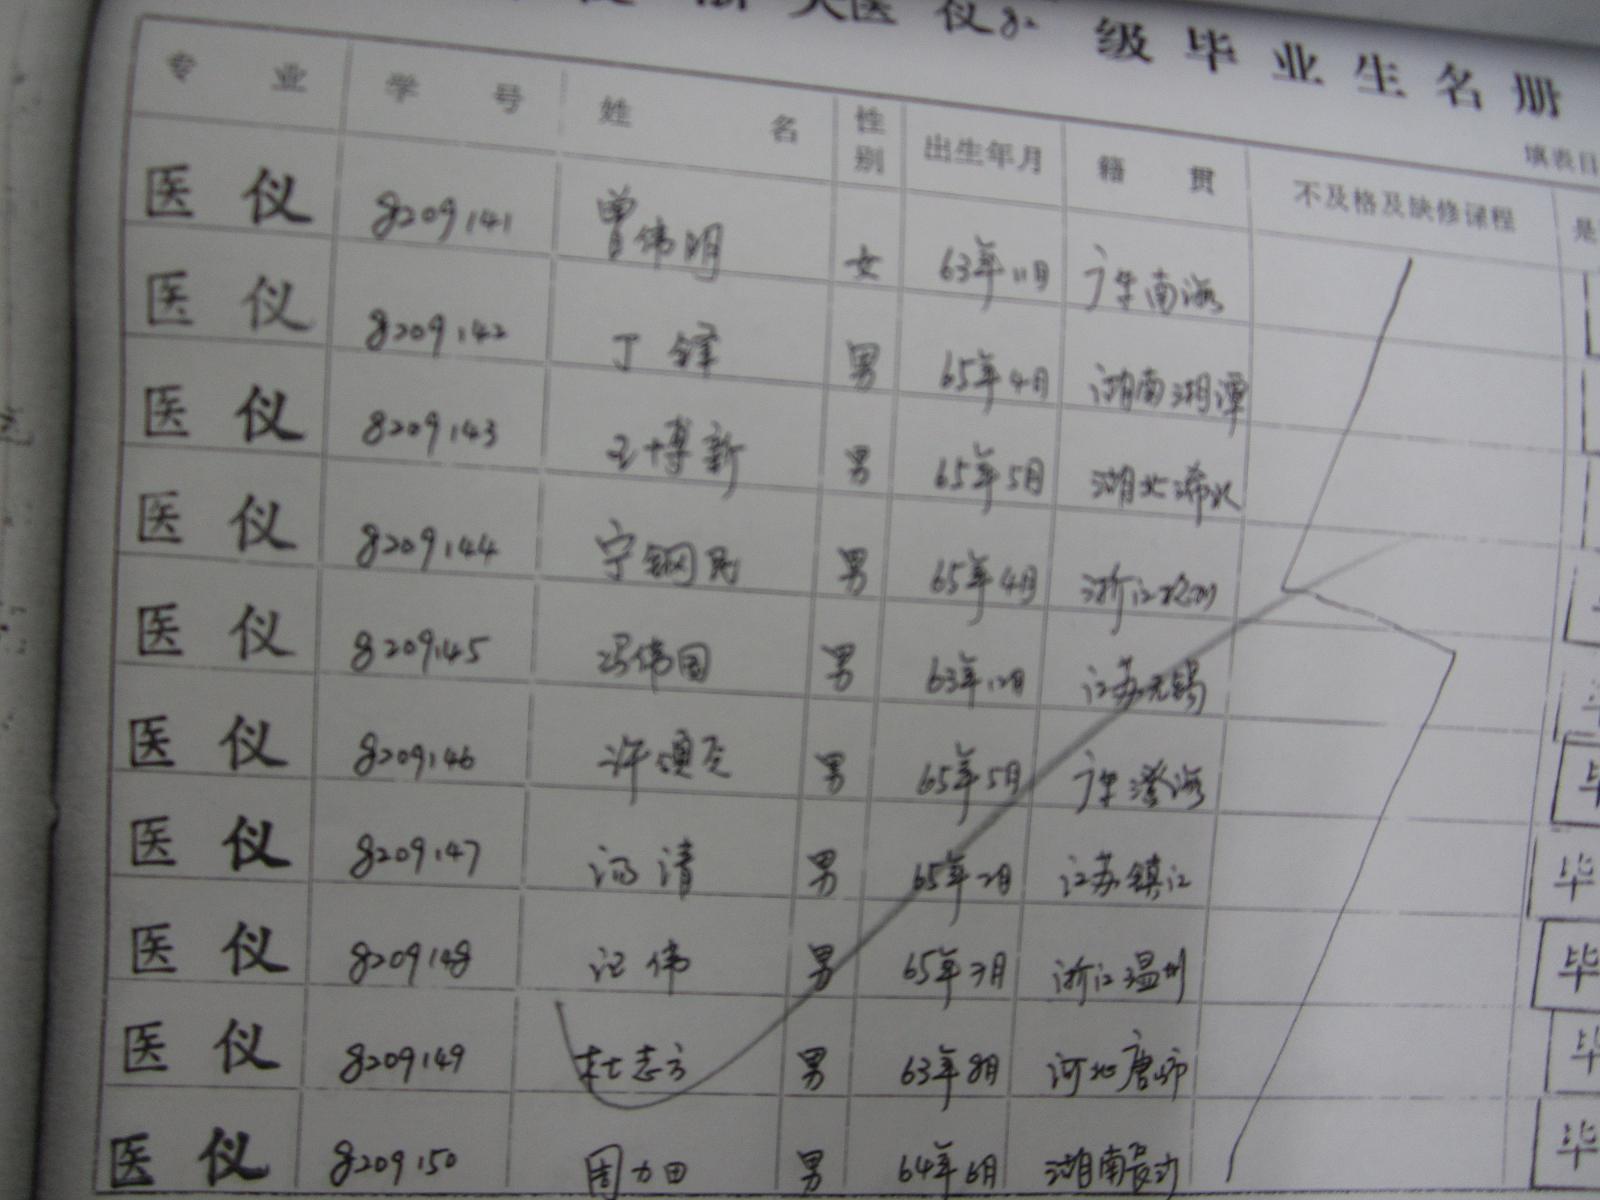 大医仪82级毕业生名册
填表日
专业 学号 姓名 性别 出生年月 籍贯 不及格及缺修课程 是
医仪 8209141 曾伟明 女 63年11月 广东南海
医仪 8209142 丁锋 男 65年4月 湖南湘潭
医仪 8209143 王博新 男 65年5月 湖北浠水
医仪 8209144 宁钢民 男 65年4月 浙江
医仪 8209145 冯伟国 男 63年12月 江苏无锡
医仪 8209146 许 男 65年5月 广东澄海
医仪 8209147 清 男 65年2月 江苏镇江 毕
医仪 8209148 伟 男 65年7月 浙江温州 毕
医仪 8209149 杜志方 男 63年8月 河北唐 毕
医仪 8209150 周力田 男 64年6月 湖南长沙 毕